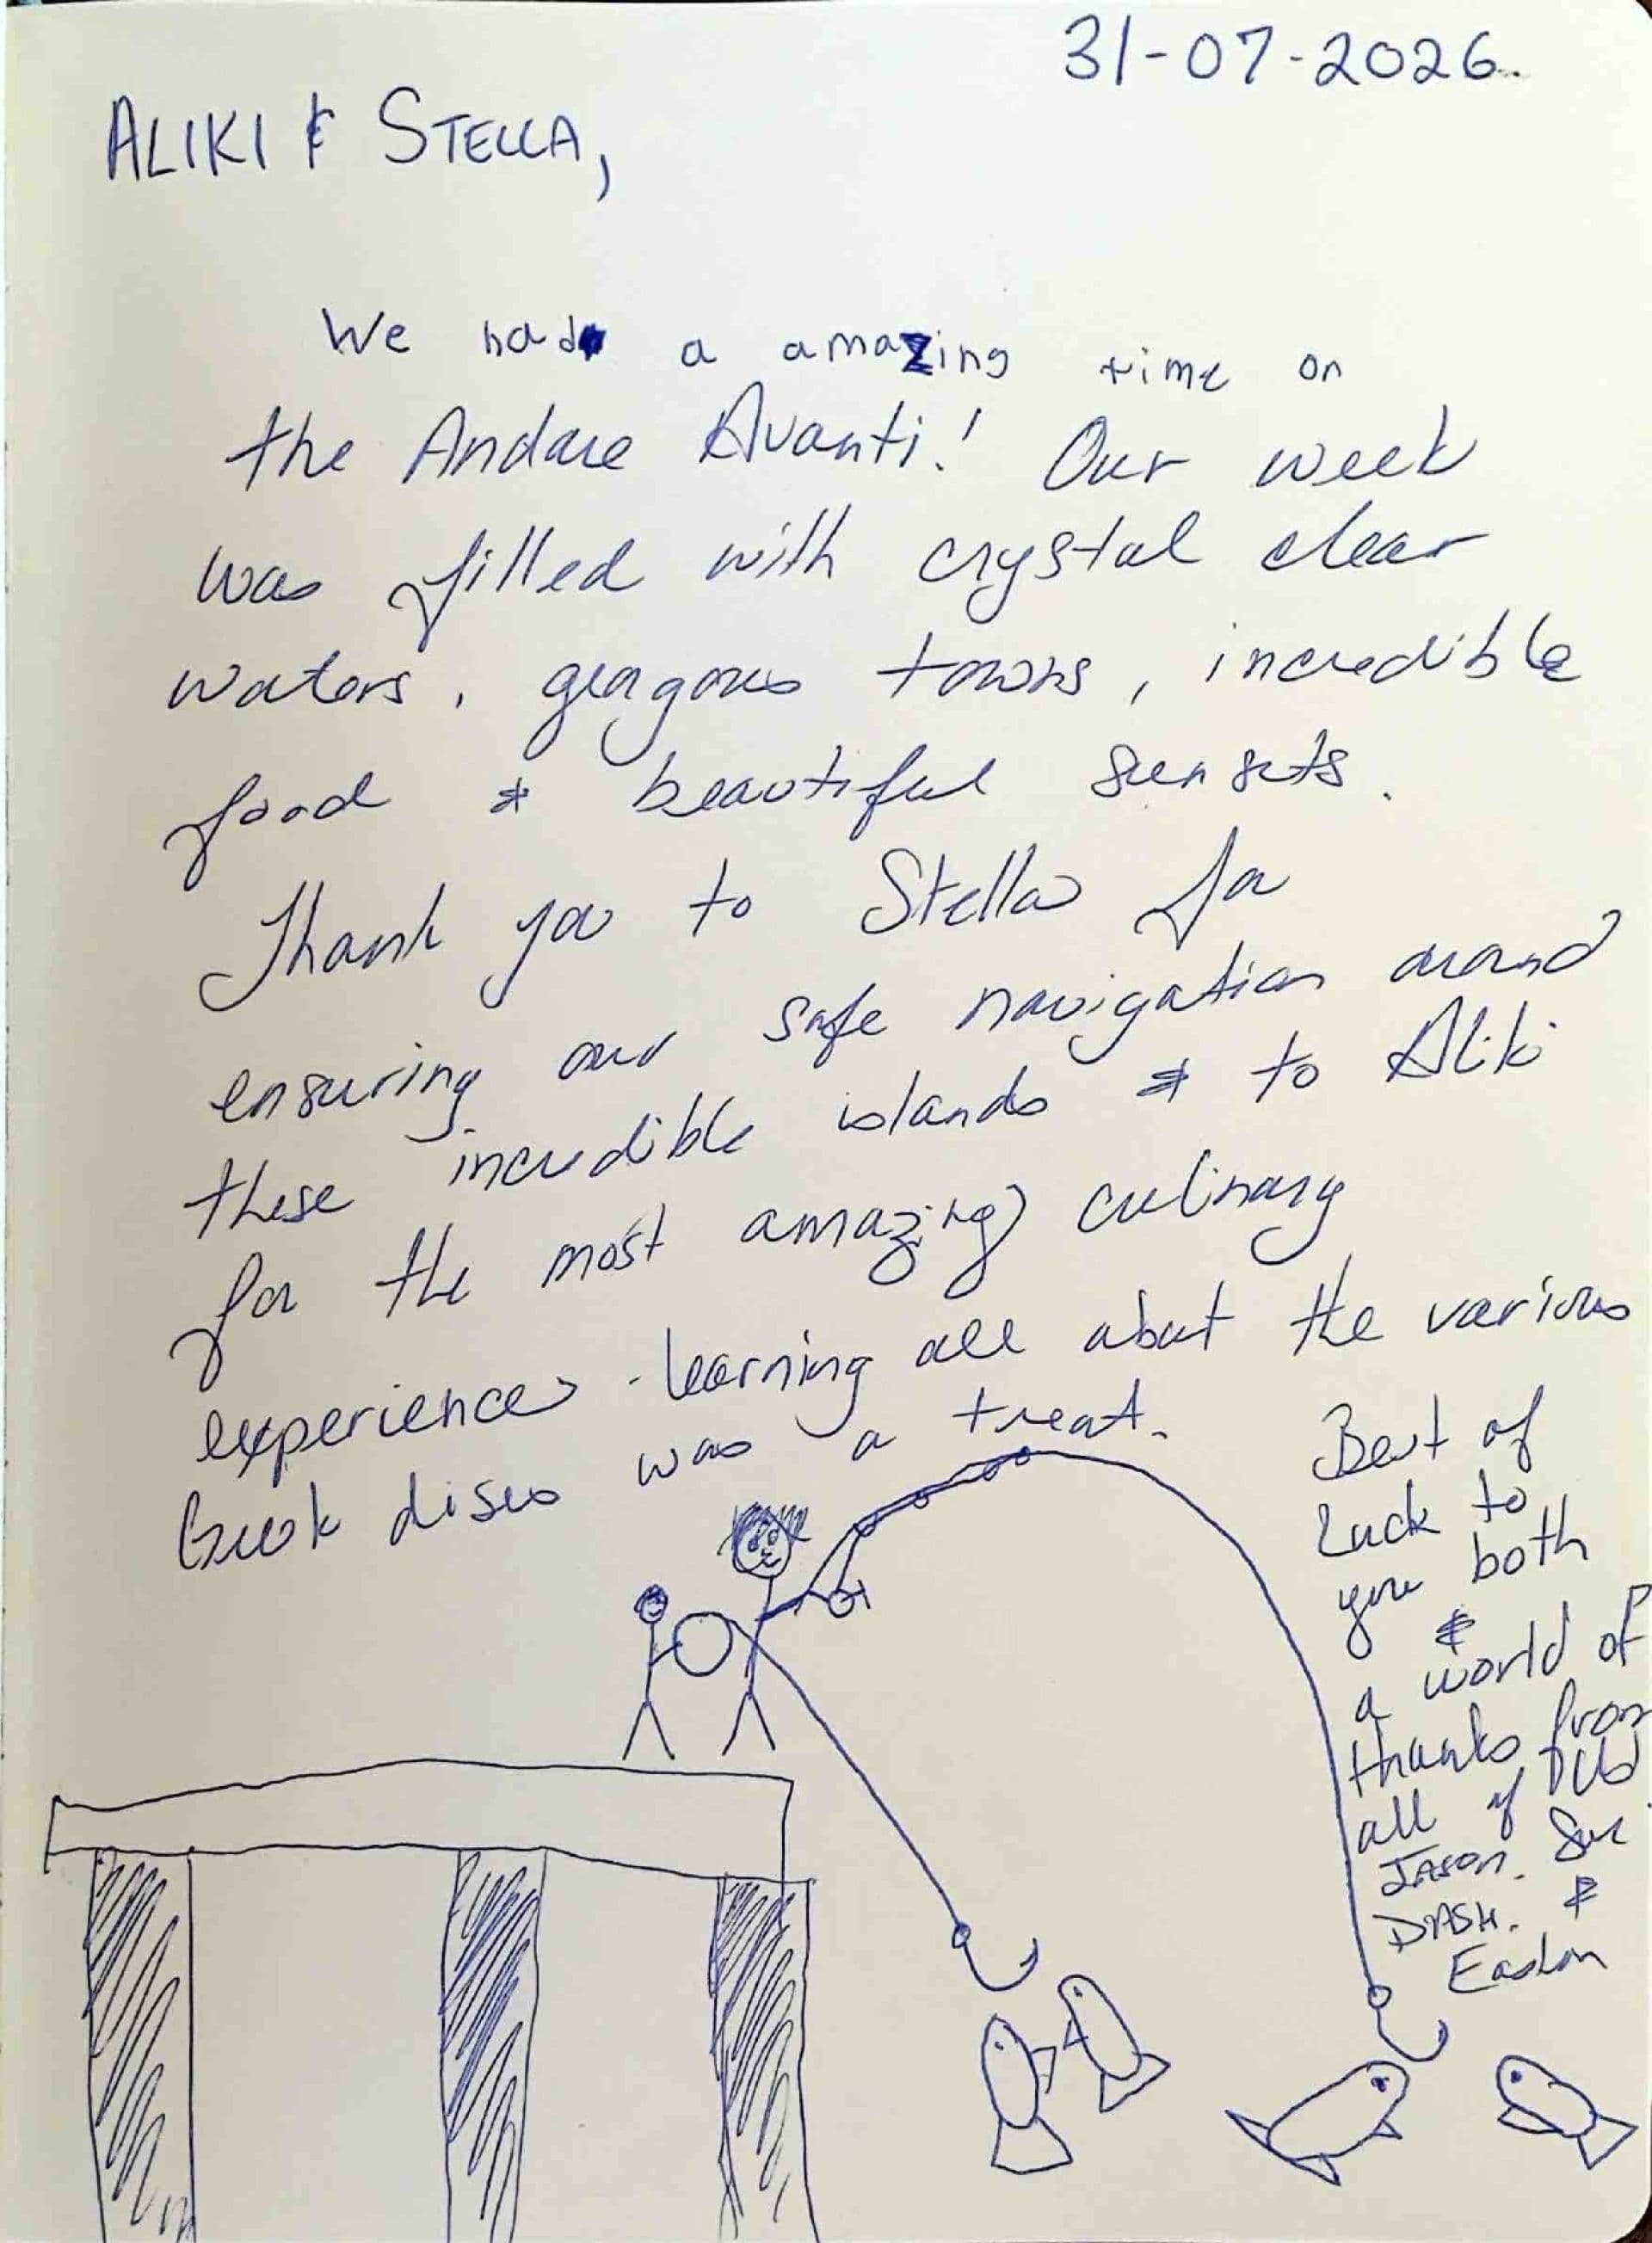 31-07-2026.
ALIKI & STELLA,
We had a amazing time on
the Andare Avanti! Our week
was filled with crystal clear
waters, gorgous towns, incredible
food & beautiful sunsets.
Thank you to Stella for
ensuring our safe navigation around
these incredible islands & to Aliki
for the most amazing culinary
experiences - learning all about the various
Greek dishes was a treat.
Best of
luck to
you both
&
a world of
thanks from
all of us
Jason. Sue
DASH. &
Easton